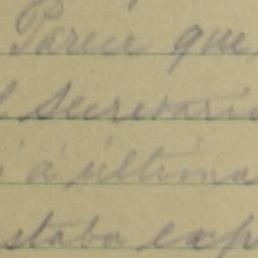 Parece que
l Secretario
i á última
staba exp